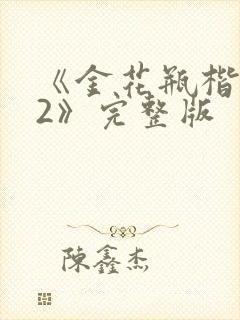 《金花瓶楷
2》完整版
陳鑫杰